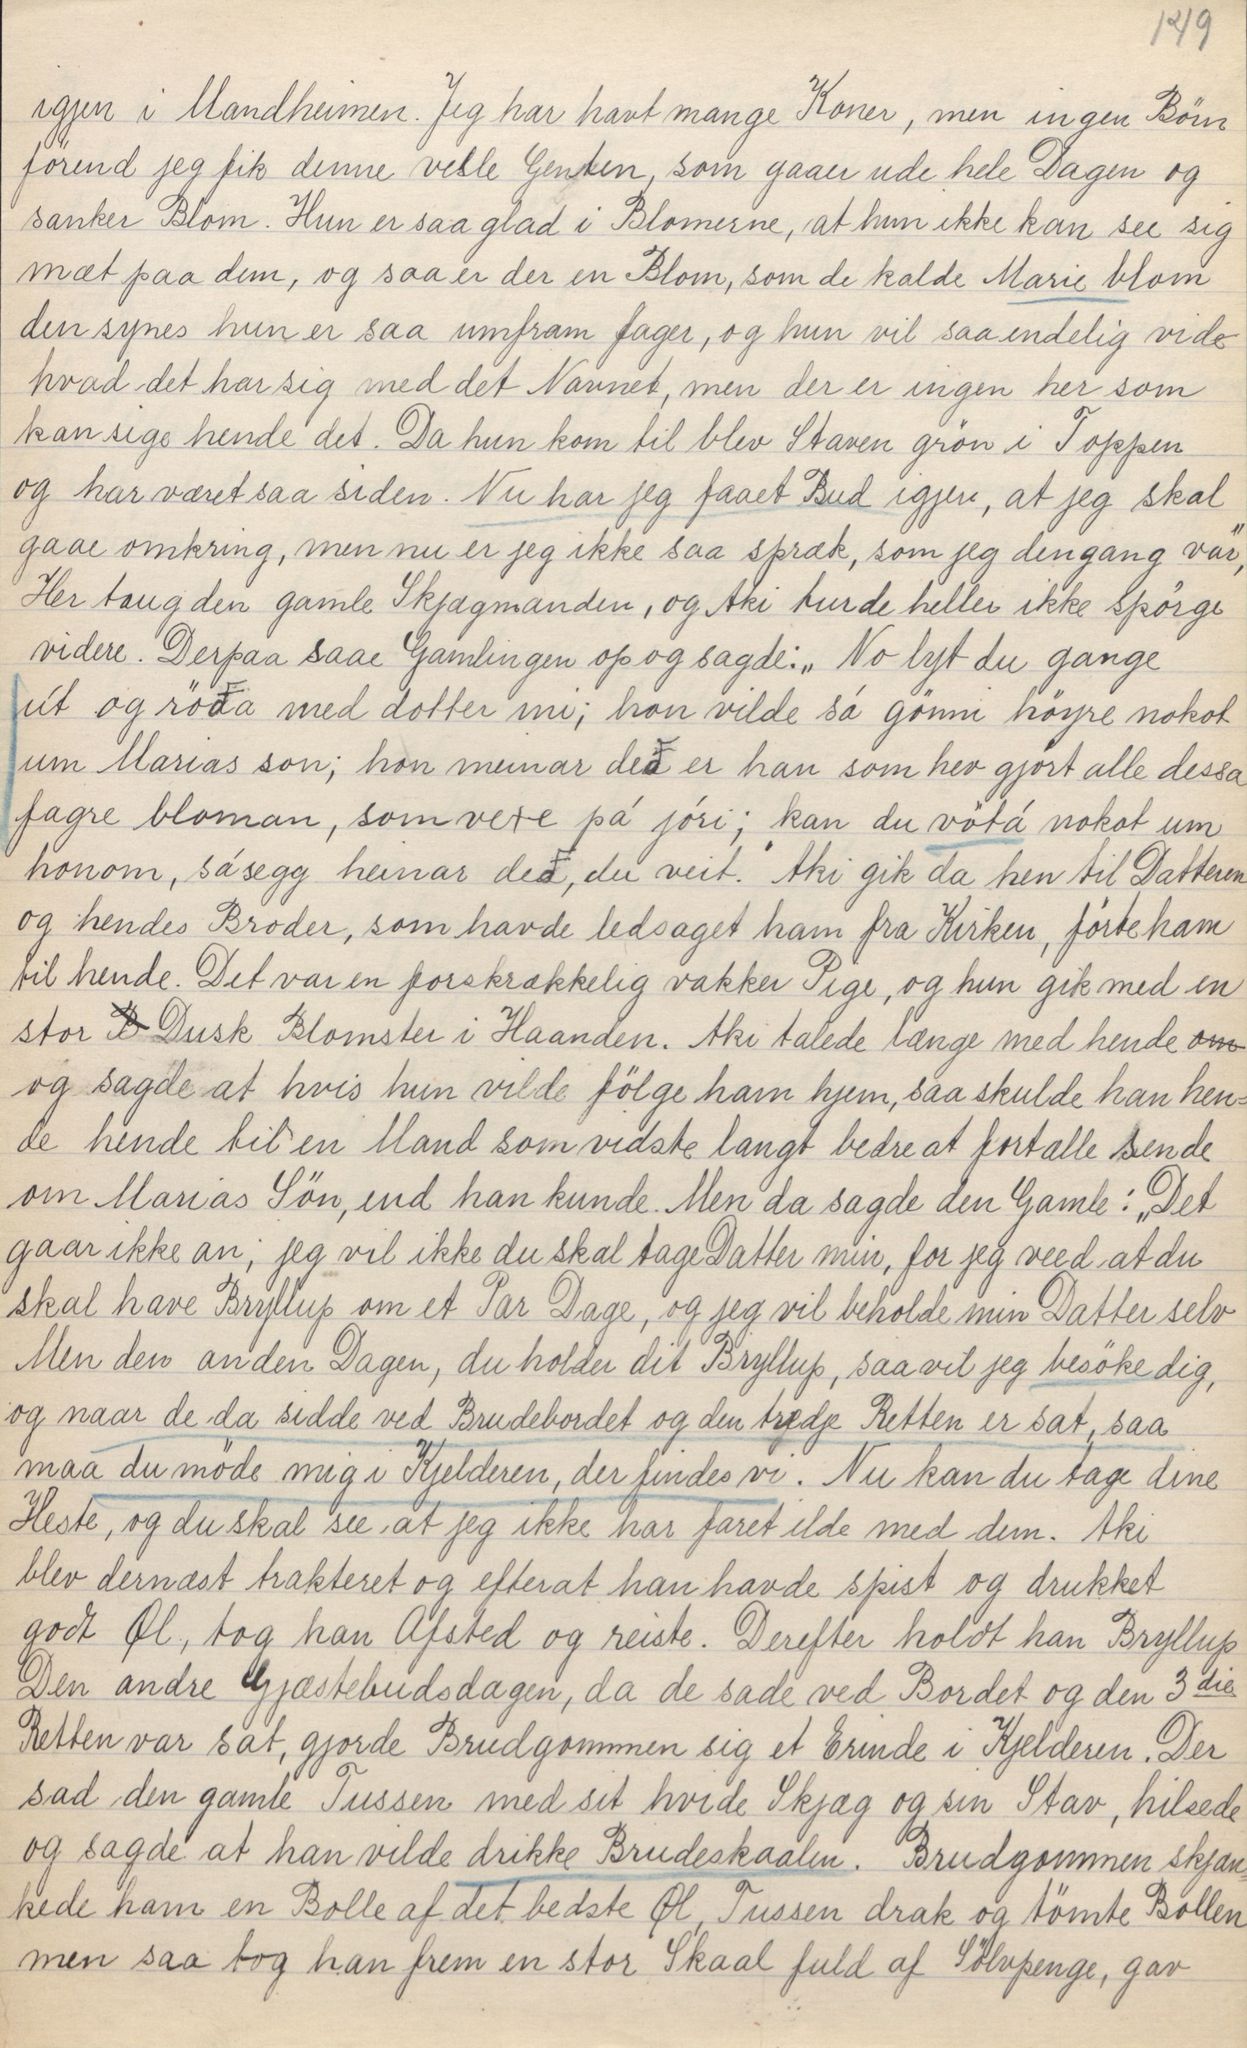 149
igjen i Mandheimen. Jeg har havt mange Koner, men ingen Börn
förend jeg fik denne vesle Genten, som gaaer ude hele Dagen og
sanker Blom. Hun er saa glad i Blomerne, at hun ikke kan see sig
mæt paa dem, og saa er der en Blom, som de kalde Marie blom
den synes hun er saa umfram fager, og hun vil saa endelig vide
hvad det har sig med det Navnet, men der er ingen her som
kan sige hende det. Da hun kom til blev Staven grön i Toppen
og har været saa siden. Nu har jeg faaet Bud igjen, at jeg skal
gaae omkring, men nu er jeg ikke saa spræk, som jeg dengang var",
Her taug den gamle Skjægmanden, og Aki turde heller ikke spörge
videre. Derpaa saae Gamlingen op og sagde: „No lyt du gange
út og röđa med dotter mi; hon vilde sá gönni höyre nokot
um Marias son; hon meinar deđ er han som hev gjört alle dessa
fagre bloman, som vexe pá jóri; kan du vötá nokot um
honom, sá segg heinar deđ, du veit." Aki gik da hen til Datteren
og hendes Broder, som havde ledsaget ham fra Kirken, förte ham
til hende. Det var en forskrækkelig vakker Pige, og hun gik med en
stor B Dusk Blomster i Haanden. Aki talede længe med hende om
og sagde at hvis hun vilde fölge ham hjem, saa skulde han hen=
de hende til en Mand som vidste langt bedre at fortælle sende
om Marias Sön, end han kunde. Men da sagde den Gamle: „Det
gaar ikke an; jeg vil ikke du skal tage Datter min, for jeg veed at du
skal have Bryllup om et Par Dage, og jeg vil beholde min Datter selv
Men den anden Dagen, du holder dit Bryllup, saa vil jeg besöke dig,
og naar de da sidde ved Brudebordet og den tredje Retten er sat, saa
maa du möde mig i Kjelderen, der findes vi. Nu kan du tage dine
Heste, og du skal see at jeg ikke har faret ilde med dem. Aki
blev dernæst trakteret og efterat han havde spist og drukket
godt Øl, tog han Afsted og reiste. Derefter holdt han Bryllup
Den andre Gjæstebudsdagen, da de sade ved Bordet og den 3die
Retten var sat, gjorde Brudgommen sig et Erinde i Kjelderen. Der
sad den gamle Tussen med sit hvide Skjæg og sin Stav, hilsede
og sagde at han vilde drikke Brudeskaalen. Brudgommen skjæn=
kede ham en Bolle af det bedste Øl, Tussen drak og tömte Bollen
men saa tog han frem en stor Skaal fuld af Sölvpenge, gav